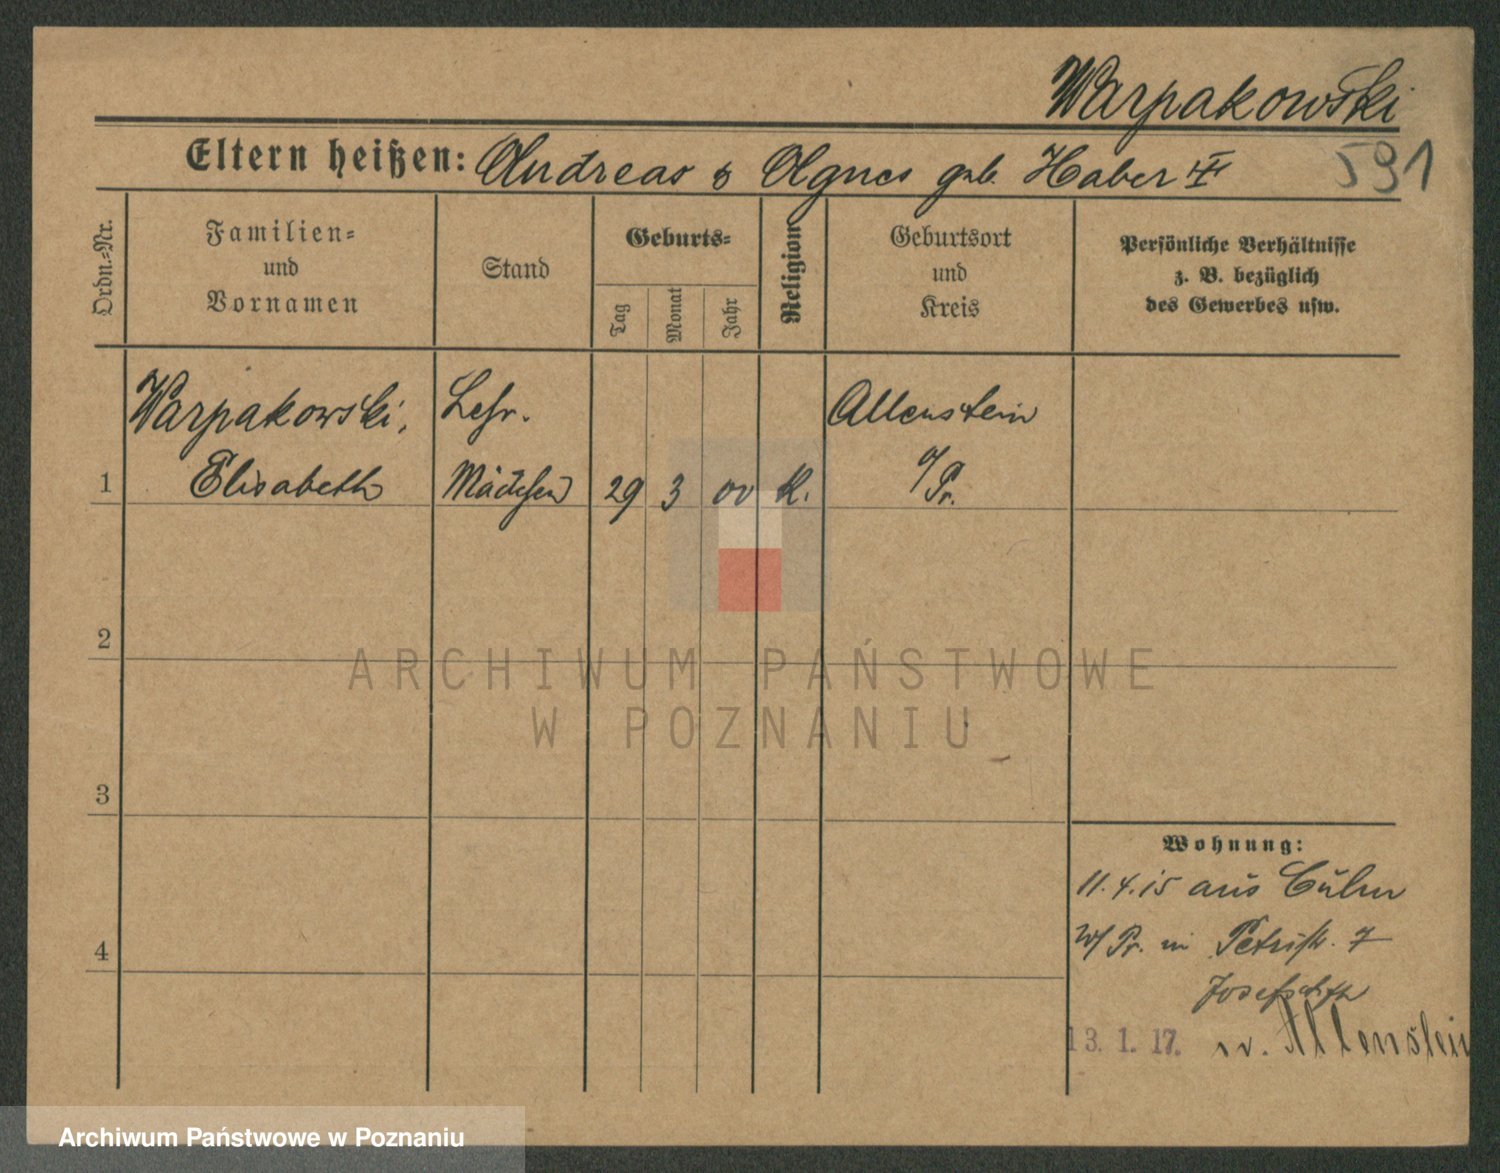 Warpakowski
Eltern heißen: Andreas & Agnes geb. Haber
591
Ordn.-Nr.
Familien-
und
Vornamen
Stand
Geburts-
Tag
Monat
Jahr
Religion
Geburtsort
und
Kreis
Persönliche Verhältnisse
z. B. bezüglich
des Gewerbes usw.
Warpakowski, Lehr. Allenstein
1 Elisabeth Mädchen 29 3 00 K. O/Pr.
2
3
4
Wohnung:
11.4.15 aus Culm
W/Pr. in Petristr. 7
Josefstift
13. 1. 17. n. Allenstein
ARCHIWUM PAŃSTWOWE
W POZNANIU
Archiwum Państwowe w Poznaniu